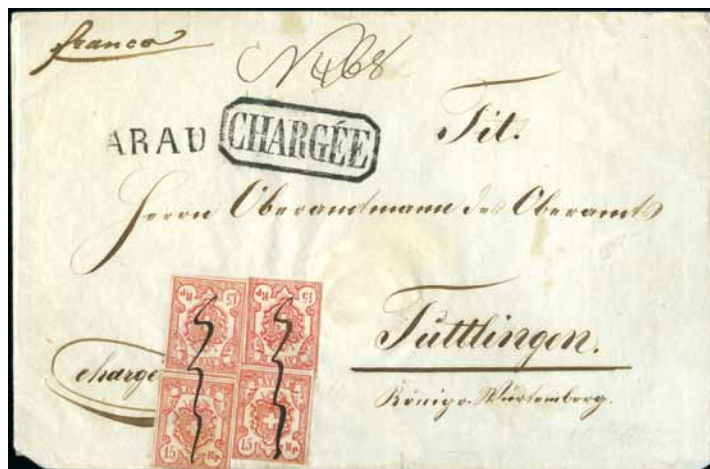 franco
No 468
ARAU CHARGÉE
Tit.
Herrn Oberamtmann des Oberamts
Tuttlingen.
chargé
Königr. Würtemberg.
15 Rp 15 Rp
15 Rp 15 Rp